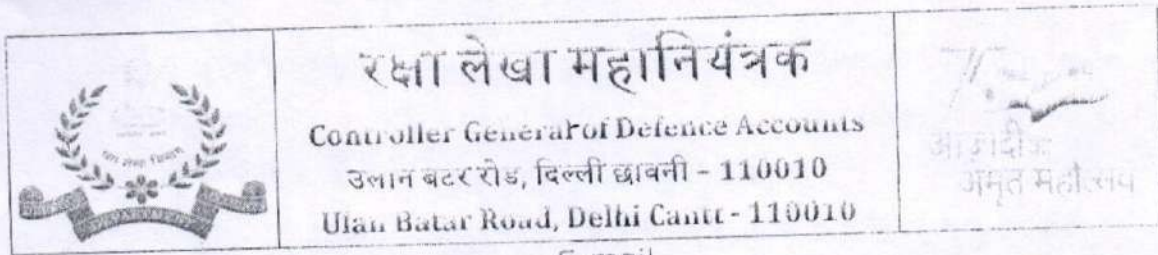 रक्षा लेखा महानियंत्रक
Controller General of Defence Accounts
उलान बटर रोड, दिल्ली छावनी - 110010
Ulan Batar Road, Delhi Cantt - 110010
आज़ादी का
अमृत महोत्सव
E-mail